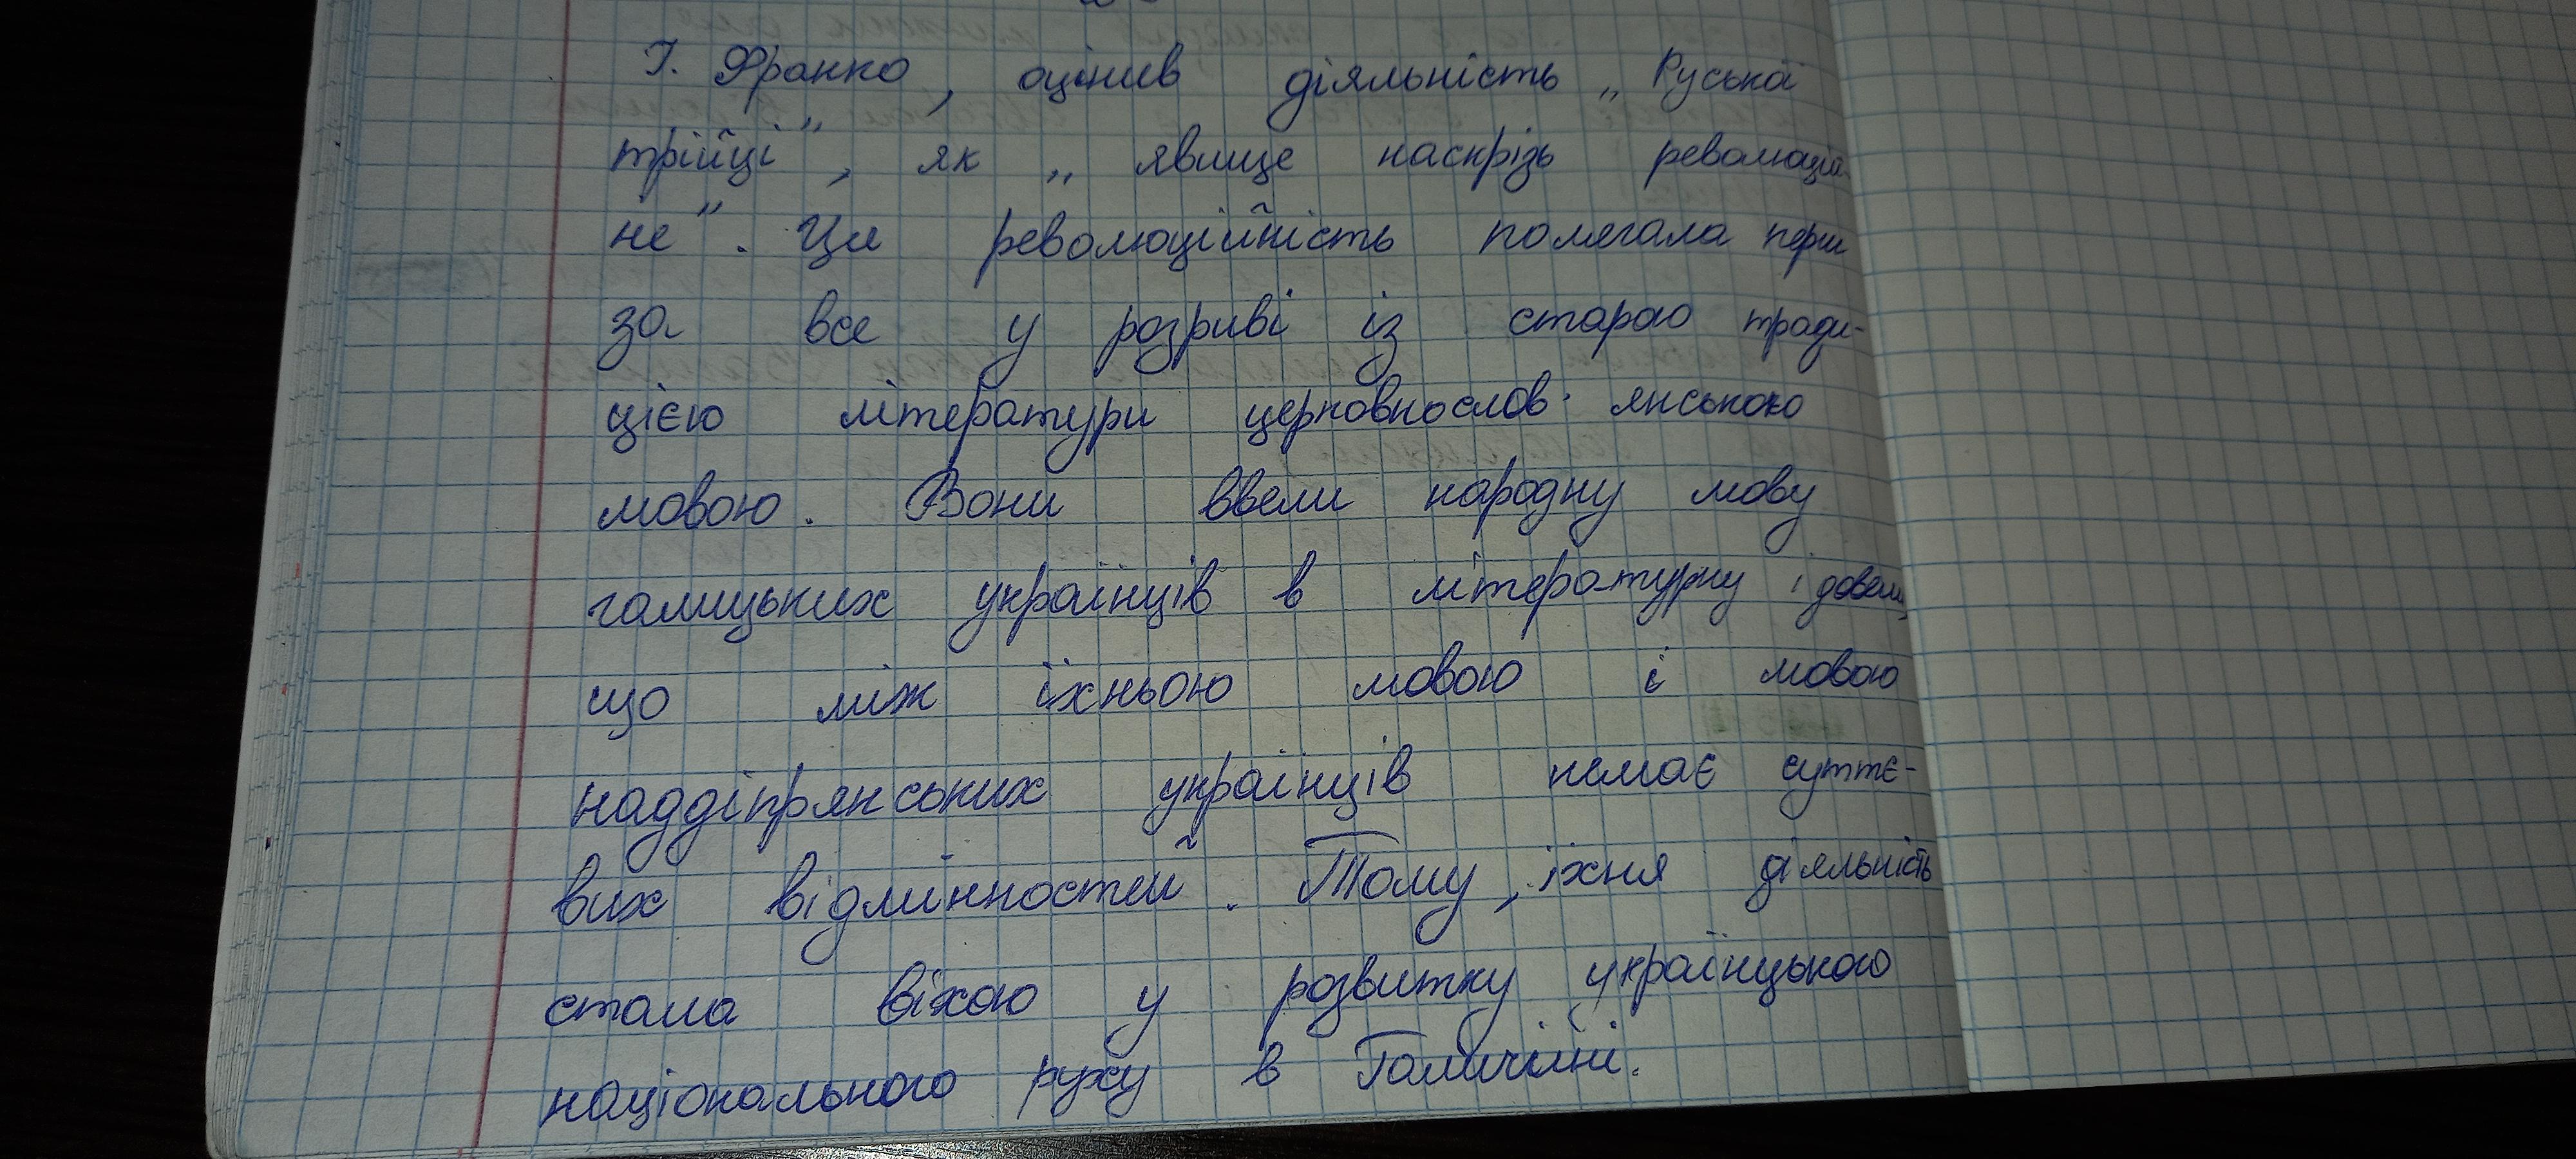 І. Франко, оцінив діяльність „Руської
трійці", як „явище наскрізь революцій-
не". Ця революційність полягала перш
за все у розриві із старою тради-
цією літератури церковнослов'янською
мовою. Вони ввели народну мову
галицьких українців в літературну і довели,
що між їхньою мовою і мовою
наддіпрянських українців немає суттє-
вих відмінностей. Тому, їхня діяльність
стала віхою у розвитку українцького
національного руху в Галичині.